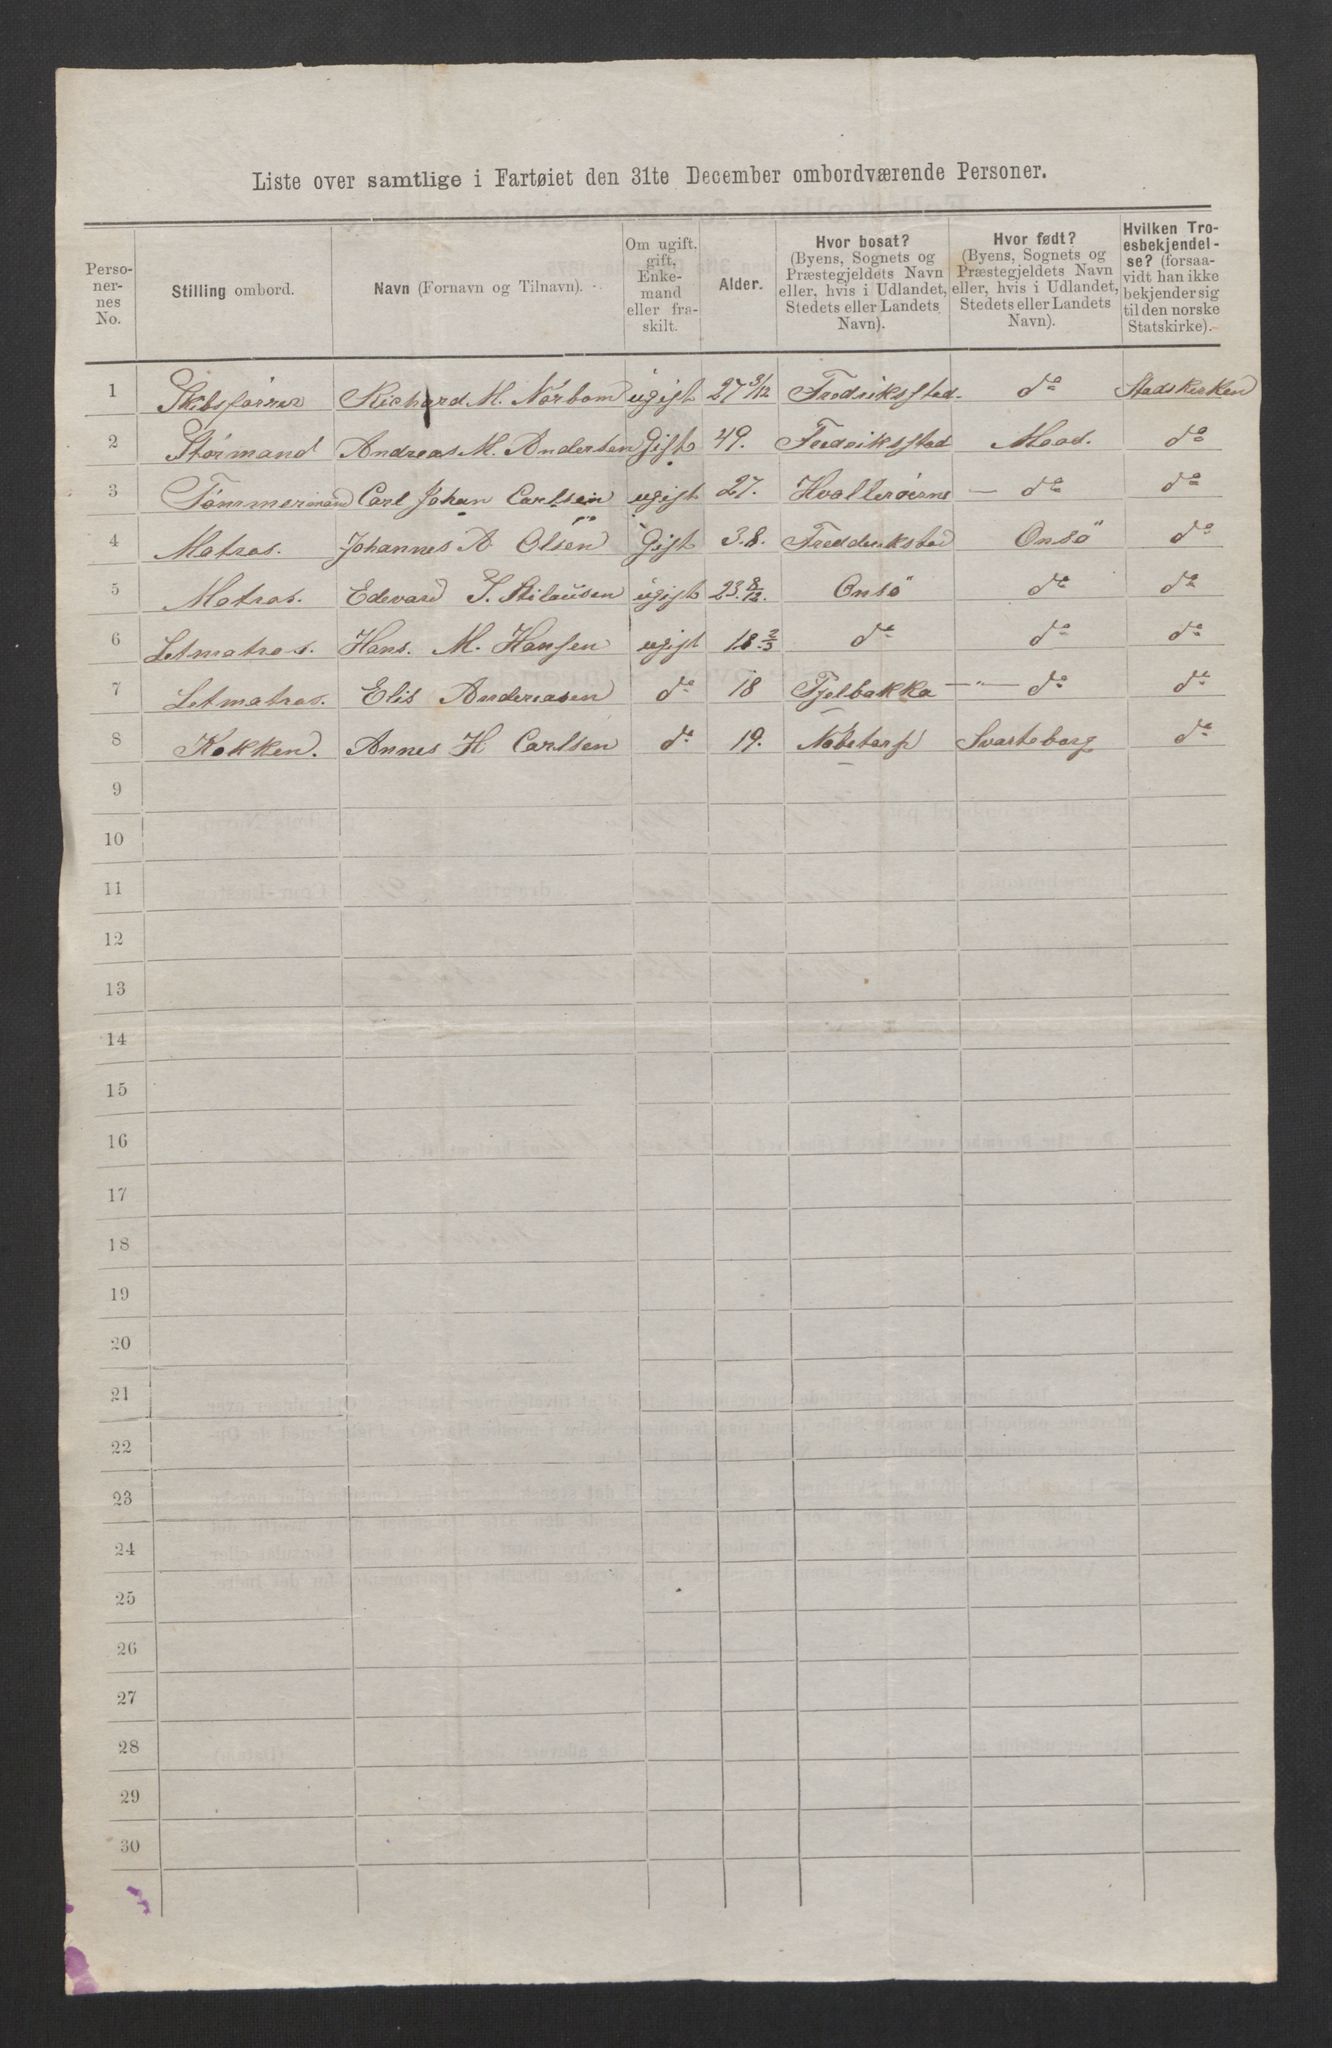 Liste over samtlige i Fartøiet den 31te December ombordværende Personer.
Perso-
ner-
nes
No.
Stilling ombord.
Navn (Fornavn og Tilnavn).
Om ugift,
gift,
Enke-
mand
eller fra-
skilt.
Alder.
Hvor bosat?
(Byens, Sognets og
Præstegjeldets Navn
eller, hvis i Udlandet,
Stedets eller Landets
Navn).
Hvor født?
(Byens, Sognets og
Præstegjeldets Navn
eller, hvis i Udlandet,
Stedets eller Landets
Navn).
Hvilken Tro-
esbekjendel-
se? (forsaa-
vidt han ikke
bekjender sig
til den norske
Statskirke).
1 Skibsförrer Richard M. Norbom ugift 27 3/12 Fredriksstad. do Stadskirken
2 Störmand Andreas M. Andersen Gift 49. Fredriksstad Moss. do
3 Tömmermand Carl Johan Carlsen ugift 27. Hvalleröerne — do do
4 Matros. Johannes A Olsen Gift 38. Fredderikstad Onsö do
5 Matros. Edevard S. ugift 23. 8/12. Onsö do do
6 Letmatros. Hans. M. Hansen ugift 18. 2/3 do do do
7 Letmatros. Elis Andereasen do 18 Fjelbakka —"— do do
8 Kokken. Annes H Carlsen do 19. Svarteborg do
9
10
11
12
13
14
15
16
17
18
19
20
21
22
23
24
25
26
27
28
29
30